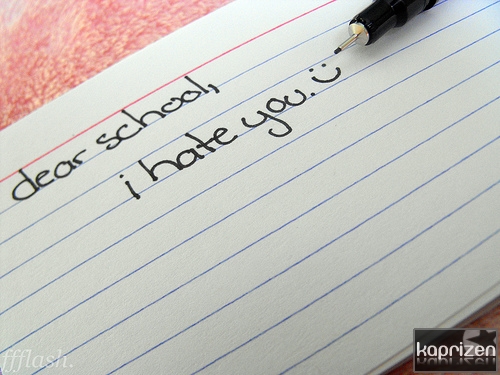 dear school,
i hate you. :)
ffflash.
kaprizen